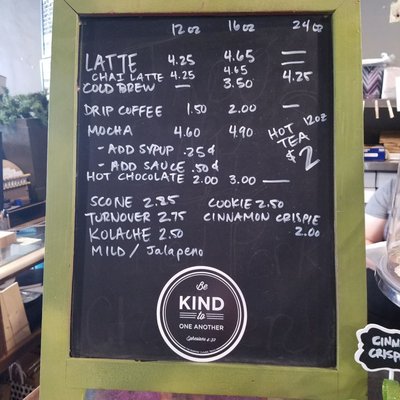 12oz 16oz 24oz
LATTE 4.25 4.65 —
CHAI LATTE 4.25 4.65 4.25
COLD BREW — 3.50
DRIP COFFEE 1.50 2.00 —
MOCHA 4.60 4.90
- ADD SYRUP .25¢
- ADD SAUCE .50¢
HOT CHOCOLATE 2.00 3.00 —
HOT 12oz
TEA
$2
SCONE 2.25 COOKIE 2.50
TURNOVER 2.75 CINNAMON CRISPIE
KOLACHE 2.50 2.00
MILD / Jalapeno
Be
KIND
to
ONE ANOTHER
Ephesians 4:32
CINN
CRISP